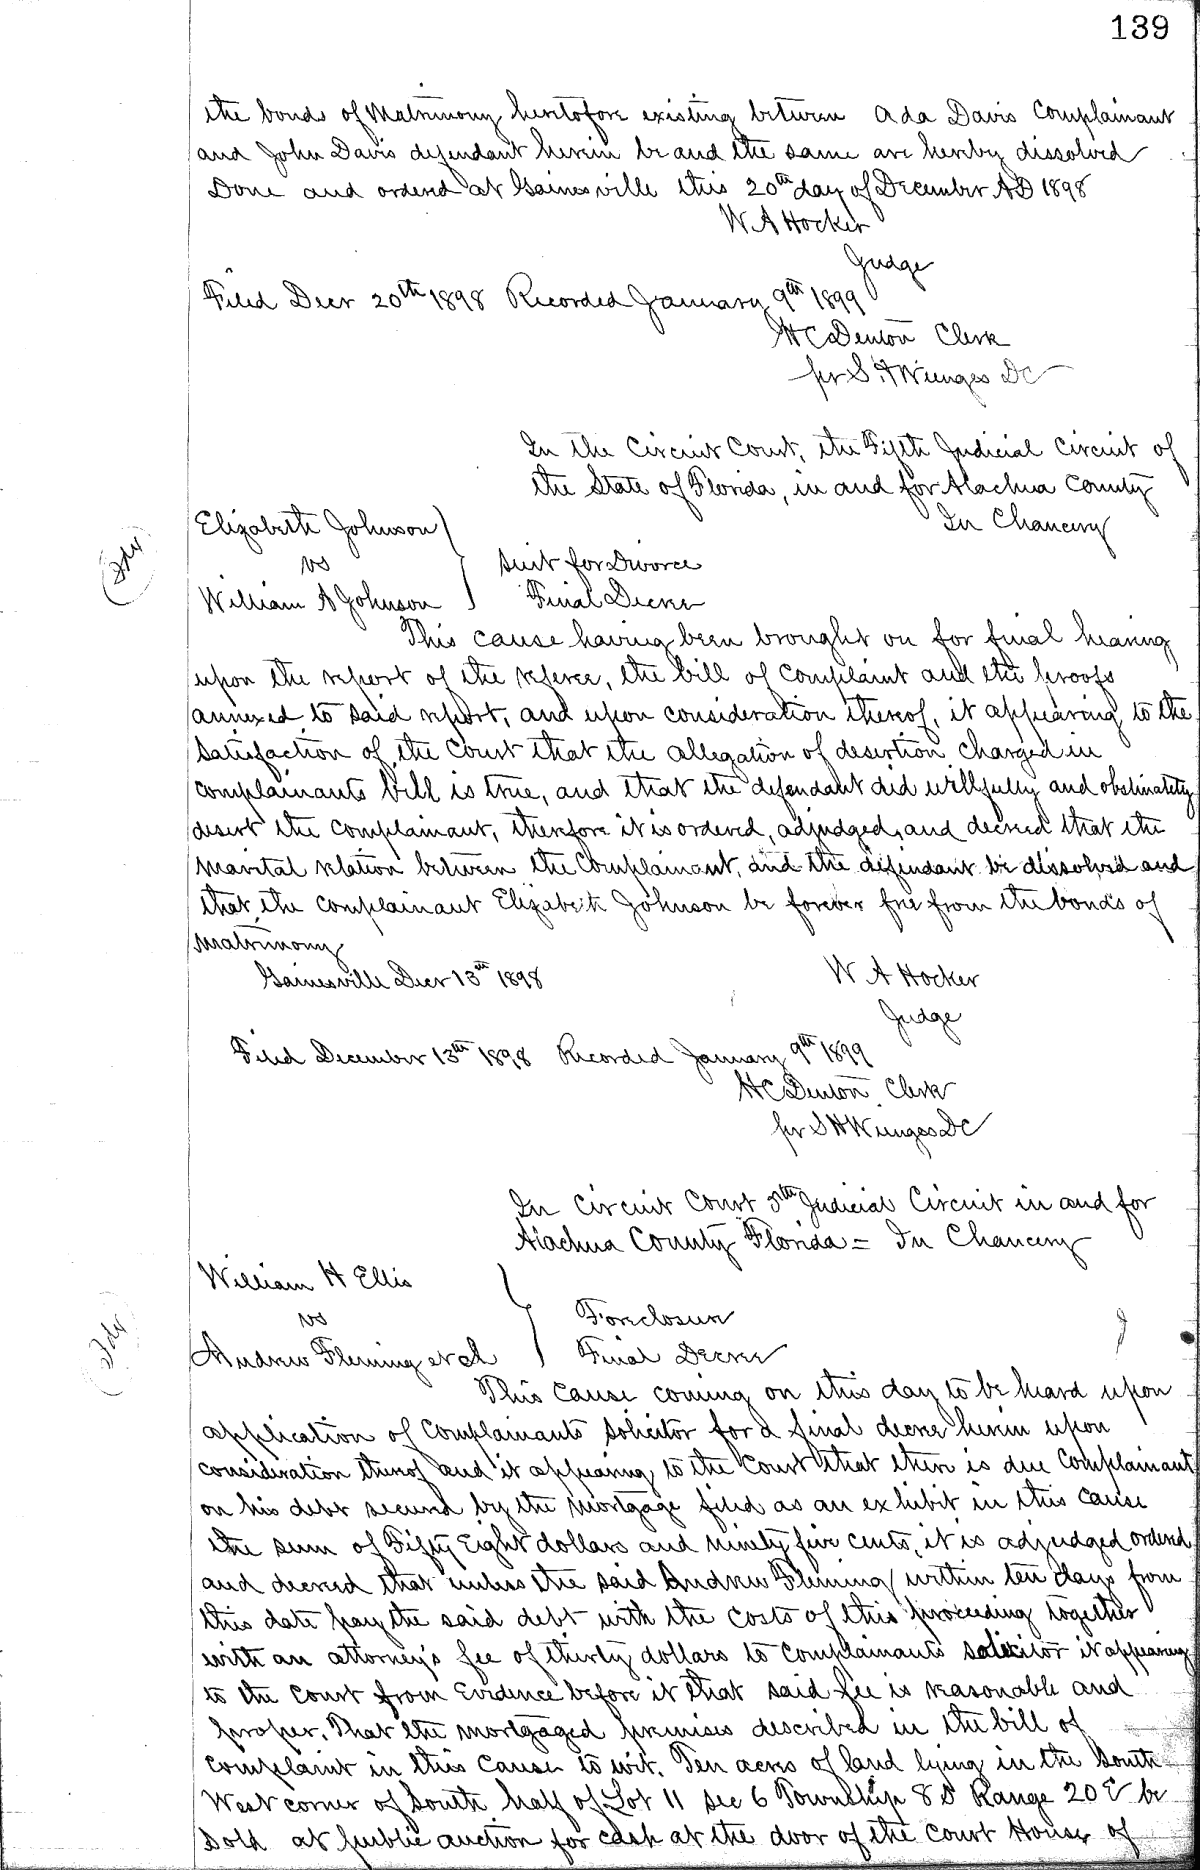 139
the bonds of Matrimony heretofore existing between Ada Davis Complainant
and John Davis defendant herein be and the same are hereby dissolved
Done and ordered at Gainesville this 20th day of December AD 1898
W A Hocker
Judge
Filed Decr 20th 1898 Recorded January 9th 1899
H C Denton Clerk
per S H Wienges DC
In the Circuit Court, the Fifth Judicial Circuit of
the State of Florida, in and for Alachua County
In Chancery
Elizabeth Johnson
vs
suit for Divorce
William A Johnson
Final Decree
This cause having been brought on for final hearing
upon the report of the referee, the bill of complaint and the proofs
annexed to said report, and upon consideration thereof, it appearing to the
satisfaction of the Court that the allegation of desertion charged in
complainants bill is true, and that the defendant did willfully and obstinately
desert the complainant, therefore it is ordered, adjudged, and decreed that the
marital relation between the Complainant, and the defendant be dissolved and
that the complainant Elizabeth Johnson be forever free from the bonds of
matrimony
Gainesville Decr 13th 1898
W A Hocker
Judge
Filed December 13th 1898 Recorded January 9th 1899
H C Denton Clerk
per S H Wienges DC
In Circuit Court 5th Judicial Circuit in and for
Alachua County Florida = In Chancery
William H Ellis
vs
Foreclosure
Andrew Fleming et al
Final Decree
This cause coming on this day to be heard upon
application of Complainants solicitor for a final decree herein upon
consideration thereof and it appearing to the Court that there is due Complainant
on his debt secured by the mortgage filed as an exhibit in this cause
the sum of Fifty Eight dollars and ninety five cents, it is adjudged ordered
and decreed that unless the said Andrew Fleming within ten days from
this date pay the said debt with the costs of this proceeding together
with an attorney's fee of thirty dollars to complainants solicitor it appearing
to the Court from Evidence before it that said fee is reasonable and
proper. That the mortgaged premises described in the bill of
complaint in this cause to wit. Ten acres of land lying in the South
West corner of South half of Lot 11 sec 6 Township 8 S Range 20 E be
sold at public auction for cash at the door of the Court House of